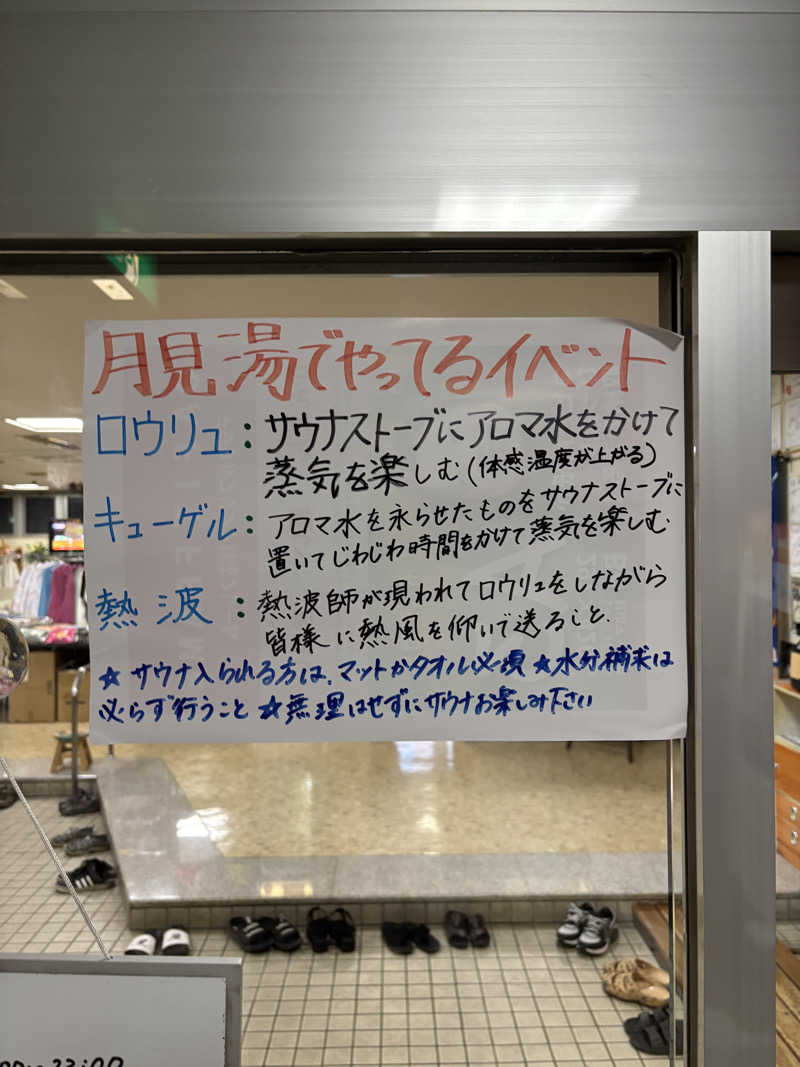 月見湯でやってるイベント
ロウリュ：サウナストーブにアロマ水をかけて
蒸気を楽しむ(体感温度が上がる)
キューゲル：アロマ水を氷らせたものをサウナストーブに
置いてじわじわ時間をかけて蒸気を楽しむ
熱波：熱波師が現われてロウリュをしながら
皆様に熱風を仰いで送ること.
☆サウナ入られる方は、マットかタオル必須☆水分補求は
必らず行うこと☆無理はせずにサウナお楽しみ下さい
23:00